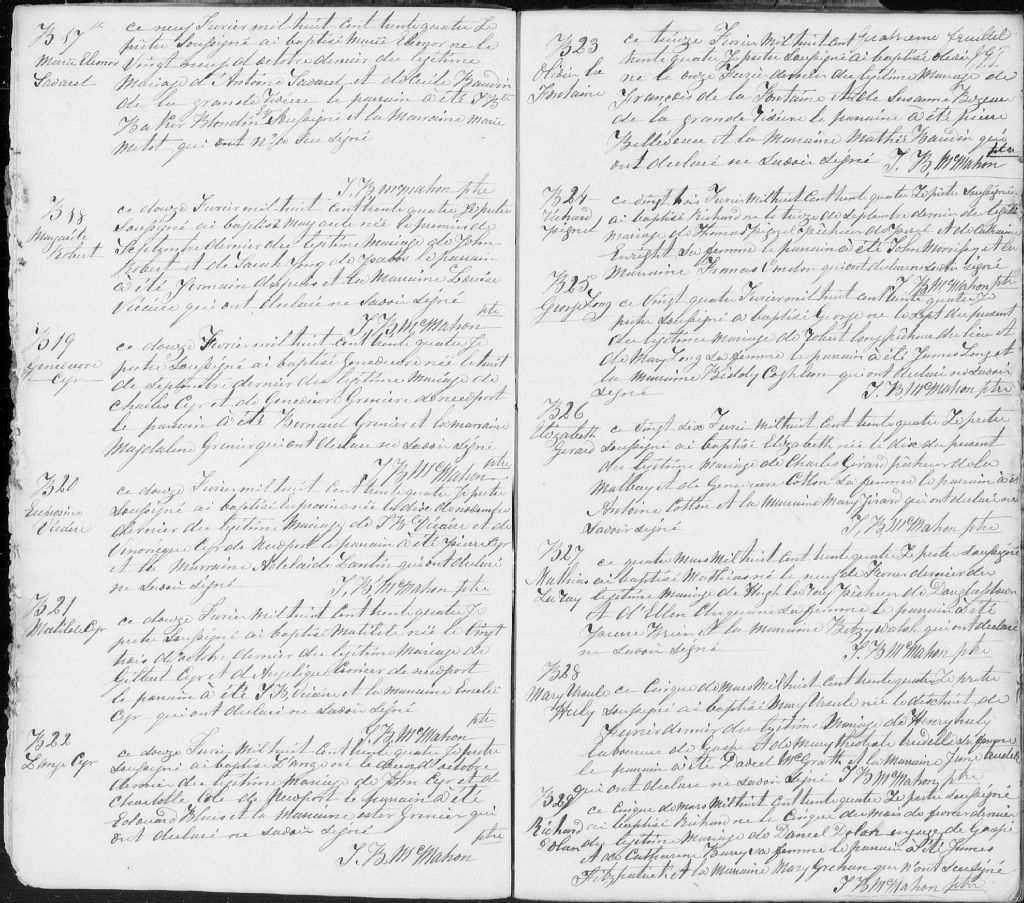 B 17
Marie Eleonor
Savarel
ce neuf Fevrier mil huit cent trente quatre Je
prêtre soussigné ai baptisé Marie Eleonor née le
Vingt neuf d'octobre dernier du legitime
Mariage d'Antoine Savarel et de Cecile Baudin
de la grande Riviere le parrain a été
Blondin soussigné et la Marraine Marie
Melot qui ont n'a pu signé
J. B. McMahon ptre
B 18
Margarite
Robert
ce douze Fevrier mil huit cent trente quatre Je prêtre
soussigné ai baptisé Margarite née le premier de
Septembre dernier du legitime Mariage de John
Robert et de Sarah Jones de Pabos le parrain
a été Germain Duguis et la Marraine Louise
Vicaire qui ont declaré ne savoir signé
ptre
J. B. McMahon
B 19
Genevieve
Cyr
ce douze Fevrier mil huit cent trente quatre Je
prêtre soussigné ai baptisé Genevieve née le huit
de Septembre dernier du legitime Mariage de
Charles Cyr et de Genevieve Greniere de newport
le parrain a été Bernard Grenier et la marraine
Magdalene Grenier qui ont declaré ne savoir signé
ptre
J. B. McMahon
B 20
Euphrosine
Vicaire
ce douze Fevrier mil huit cent trente quatre Je prêtre
soussigné ai baptisé Euprosine née le dix de novembre
dernier du legitime Mariage de J B Vicaire et de
Venerique Cyr de Newport le parrain a été Pierre Cyr
et la Marraine Adelaide Lantin qui ont declaré
ne savoir signé
J. B. McMahon ptre
B 21
Matilde Cyr
ce douze Fevrier mil huit cent trente quatre Je
prêtre soussigné ai baptisé Matilde née le Vingt
trois d'octobre dernier du legitime Mariage de
Gilbert Cyr et d'Angelique Poirier de newport
le parrain a été J B Vicaire et la marraine Emelie
Cyr qui ont declaré ne savoir signé
ptre
J. B. McMahon
B 22
L'ange Cyr
ce douze Fevrier mil huit cent trente quatre Je prêtre
soussigné ai baptisé L'ange né le deux d'octobre
dernier du legitime mariage de John Cyr et de
Charlotte Cote de Newport le parrain a été
Edouard Huis et la Marraine ester Grenier qui
ont declaré ne savoir signé
ptre
J. B. McMahon
B 23
Olésir la
Fontaine
quatrieme feuillet
ce treize Fevrier mil huit cent
trente quatre Je prêtre soussigné ai baptisé Olésir
né le onze Fevrier dernier du legitime Mariage de
François de la Fontaine et de Susanne Bizeau
de la grande Riviere le parrain a été Pierre
Bellerive et la Marraine Mathie Baudin qui
ont declaré ne savoir signé J. B. McMahon
ptre
B 24
Richard
Speignel
ce vingt trois Fevrier mil huit cent trente quatre Je prêtre soussigné
ai baptisé Richard né le treize de Septembre dernier du legitime
mariage de Thomas Speignel pêcheur de Percé et de Catherine
Enright sa femme le parrain a été John Morrissey et la
Marraine Frances Condon qui ont declaré ne savoir signé
J. B. McMahon ptre
B 25
George Long
ce Vingt quatre Fevrier mil huit cent trente quatre Je
prêtre soussigné ai baptisé George né le Sept du present
du legitime mariage de Robert Long pêcheur du lieu et
de Mary Long sa femme le parrain a été James Long et
la Marraine Biddy Coghlan qui ont declaré ne savoir
signé
J. B. McMahon ptre
B 26
Elizabeth
Girard
ce Vingt dix Fevrier mil huit cent trente quatre Je prêtre
soussigné ai baptisé Elizabeth née le dix du present
du legitime Mariage de Charles Girard pêcheur de la
Malbay et de Genevieve Cotton sa femme le parrain a été
Antoine Cotton et la Marraine Mary Girard qui ont declaré ne
savoir signé
J. B. McMahon ptre
B 27
Mathias
LeRay
ce quatre Mars mil huit cent trente quatre Je prêtre soussigné
ai baptisé Mathias né le neuf de Fevrier dernier du
legitime mariage de Hugh LeRay pêcheur de Douglastown
et d'Ellen sa femme le parrain a été
Pierre Brien et la marraine Betzy Walsh qui ont declaré
ne savoir signé
J. B. McMahon ptre
B 28
Mary Ursule
Heely
ce Cinque de Mars mil huit cent trente quatre Je prêtre
soussigné ai baptisé Mary Ursule née le dix huit de
Fevrier dernier du legitime Mariage de Henry heely
laboureur de Gaspé et de Mary trudelle sa femme
le parrain a été Daniel McGrath et la Marraine Jane trudelle
qui ont declaré ne savoir signé J. B. McMahon ptre
B 29
Richard
Dolan
ce Cinque de mars mil huit cent trente quatre Je prêtre soussigné
ai baptisé Richard né le Cinque du mois de fevrier dernier
du legitime Mariage de Daniel Dolan engagé de Gaspé
et de Catharine Barry sa femme le parrain a été James
Fitzpatrick et la Marraine Mary Grehan qui n'ont su signé
J. B. McMahon ptre